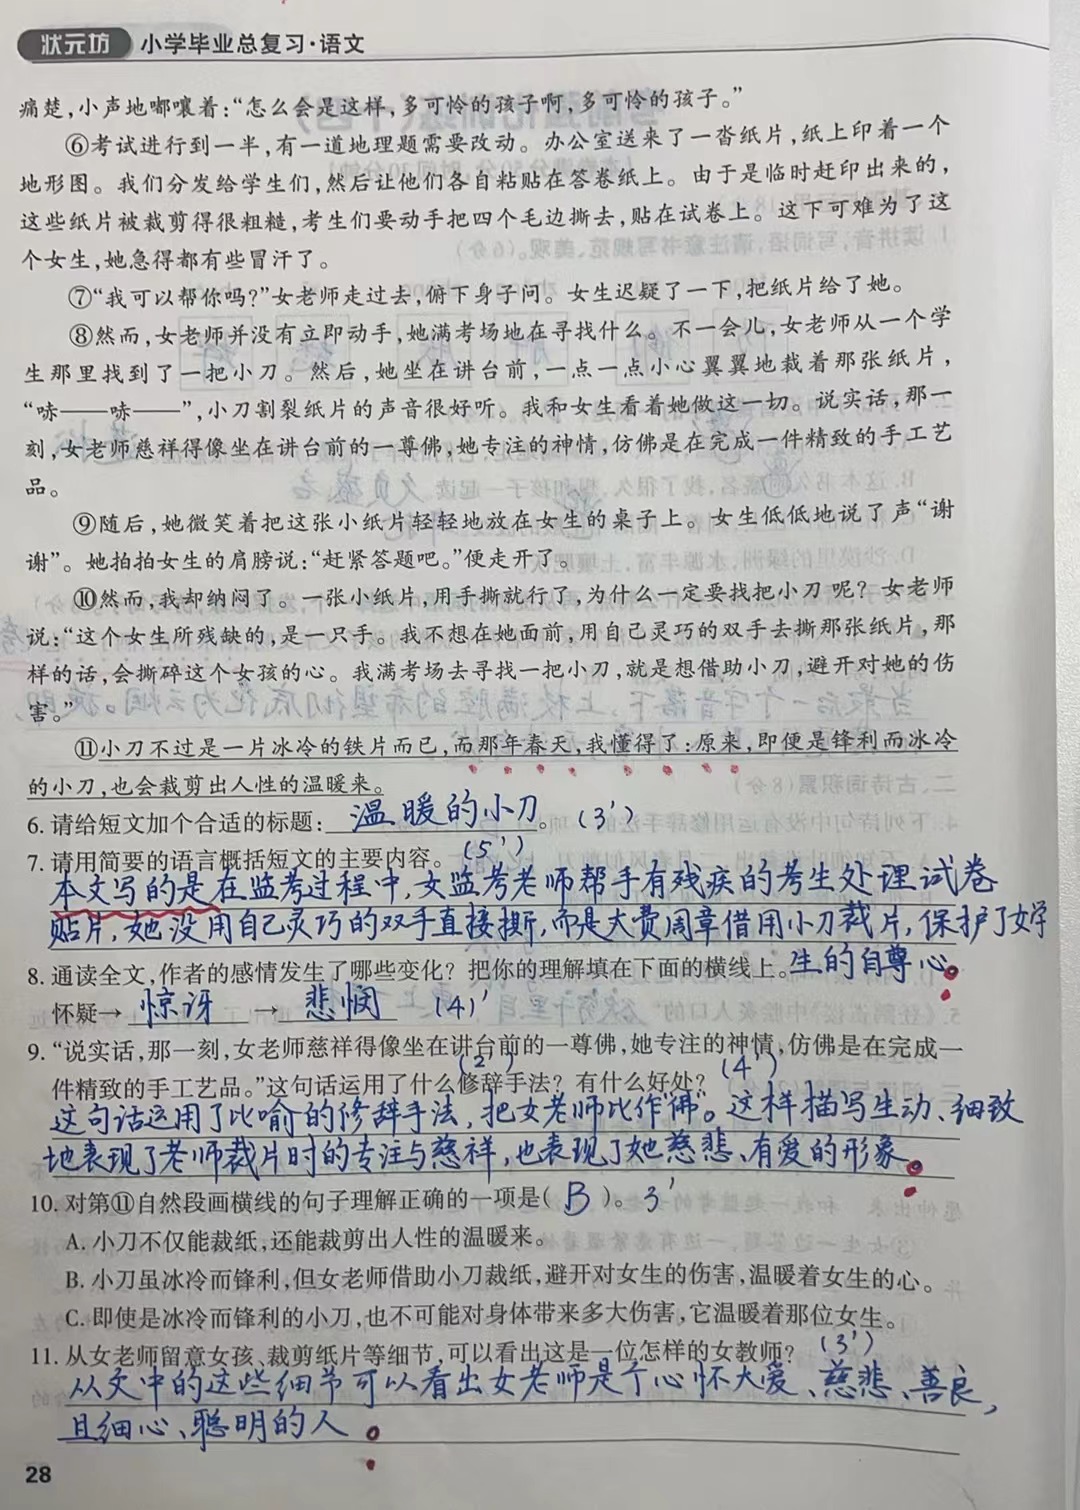 状元坊 小学毕业总复习·语文
痛楚,小声地嘟囔着:“怎么会是这样,多可怜的孩子啊,多可怜的孩子。”
⑥考试进行到一半,有一道地理题需要改动。办公室送来了一沓纸片,纸上印着一个
地形图。我们分发给学生们,然后让他们各自粘贴在答卷纸上。由于是临时赶印出来的,
这些纸片被裁剪得很粗糙,考生们要动手把四个毛边撕去,贴在试卷上。这下可难为了这
个女生,她急得都有些冒汗了。
⑦“我可以帮你吗?”女老师走过去,俯下身子问。女生迟疑了一下,把纸片给了她。
⑧然而,女老师并没有立即动手,她满考场地在寻找什么。不一会儿,女老师从一个学
生那里找到了一把小刀。然后,她坐在讲台前,一点一点小心翼翼地裁着那张纸片,
“哧——哧——”,小刀割裂纸片的声音很好听。我和女生看着她做这一切。说实话,那一
刻,女老师慈祥得像坐在讲台前的一尊佛,她专注的神情,仿佛是在完成一件精致的手工艺
品。
⑨随后,她微笑着把这张小纸片轻轻地放在女生的桌子上。女生低低地说了声“谢
谢”。她拍拍女生的肩膀说:“赶紧答题吧。”便走开了。
⑩然而,我却纳闷了。一张小纸片,用手撕就行了,为什么一定要找把小刀呢?女老师
说:“这个女生所残缺的,是一只手。我不想在她面前,用自己灵巧的双手去撕那张纸片,那
样的话,会撕碎这个女孩的心。我满考场去寻找一把小刀,就是想借助小刀,避开对她的伤
害。”
⑪小刀不过是一片冰冷的铁片而已,而那年春天,我懂得了:原来,即便是锋利而冰冷
的小刀,也会裁剪出人性的温暖来。
6. 请给短文加个合适的标题: 温暖的小刀 。 (3')
7. 请用简要的语言概括短文的主要内容。 (5')
本文写的是在监考过程中,女监考老师帮手有残疾的考生处理试卷
贴片,她没用自己灵巧的双手直接撕,而是大费周章借用小刀裁片,保护了女学
8. 通读全文,作者的感情发生了哪些变化? 把你的理解填在下面的横线上。 生的自尊心。
怀疑→ 惊讶 → 悲悯 (4)'
9. “说实话,那一刻,女老师慈祥得像坐在讲台前的一尊佛,她专注的神情,仿佛是在完成一
件精致的手工艺品。”这句话运用了什么修辞手法? (2') 有什么好处? (4')
这句话运用了比喻的修辞手法,把女老师比作“佛”。这样描写生动、细致
地表现了老师裁片时的专注与慈祥,也表现了她慈悲、有爱的形象。
10. 对第⑪自然段画横线的句子理解正确的一项是( B )。 3'
A. 小刀不仅能裁纸,还能裁剪出人性的温暖来。
B. 小刀虽冰冷而锋利,但女老师借助小刀裁纸,避开对女生的伤害,温暖着女生的心。
C. 即使是冰冷而锋利的小刀,也不可能对身体带来多大伤害,它温暖着那位女生。
11. 从女老师留意女孩、裁剪纸片等细节,可以看出这是一位怎样的女教师? (3')
从文中的这些细节可以看出女老师是个心怀大爱、慈悲、善良,
且细心、聪明的人。
28